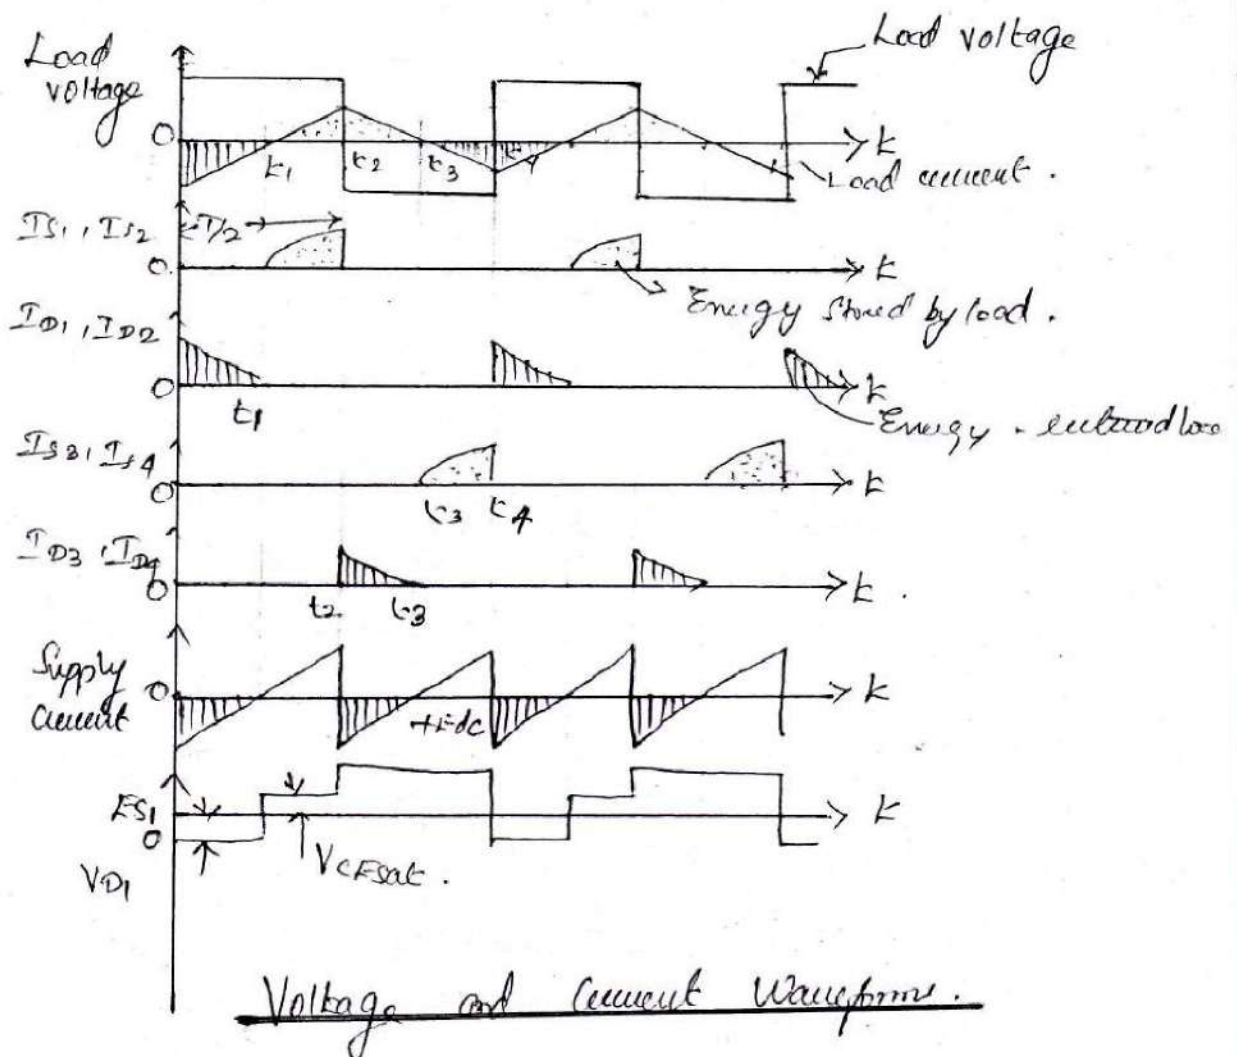 Load voltage
Load
voltage
0
t
t1
t2
t3
t4
Load current.
IS1, IS2
T/2
0
t
Energy stored by load.
ID1, ID2
0
t
t1
Energy
IS3, IS4
0
t
t3 t4
ID3, ID4
0
t.
t2 t3
Supply
current
0
t
+Edc
ES1
t
0
VCEsat.
VD1
Voltage and current Waveforms.